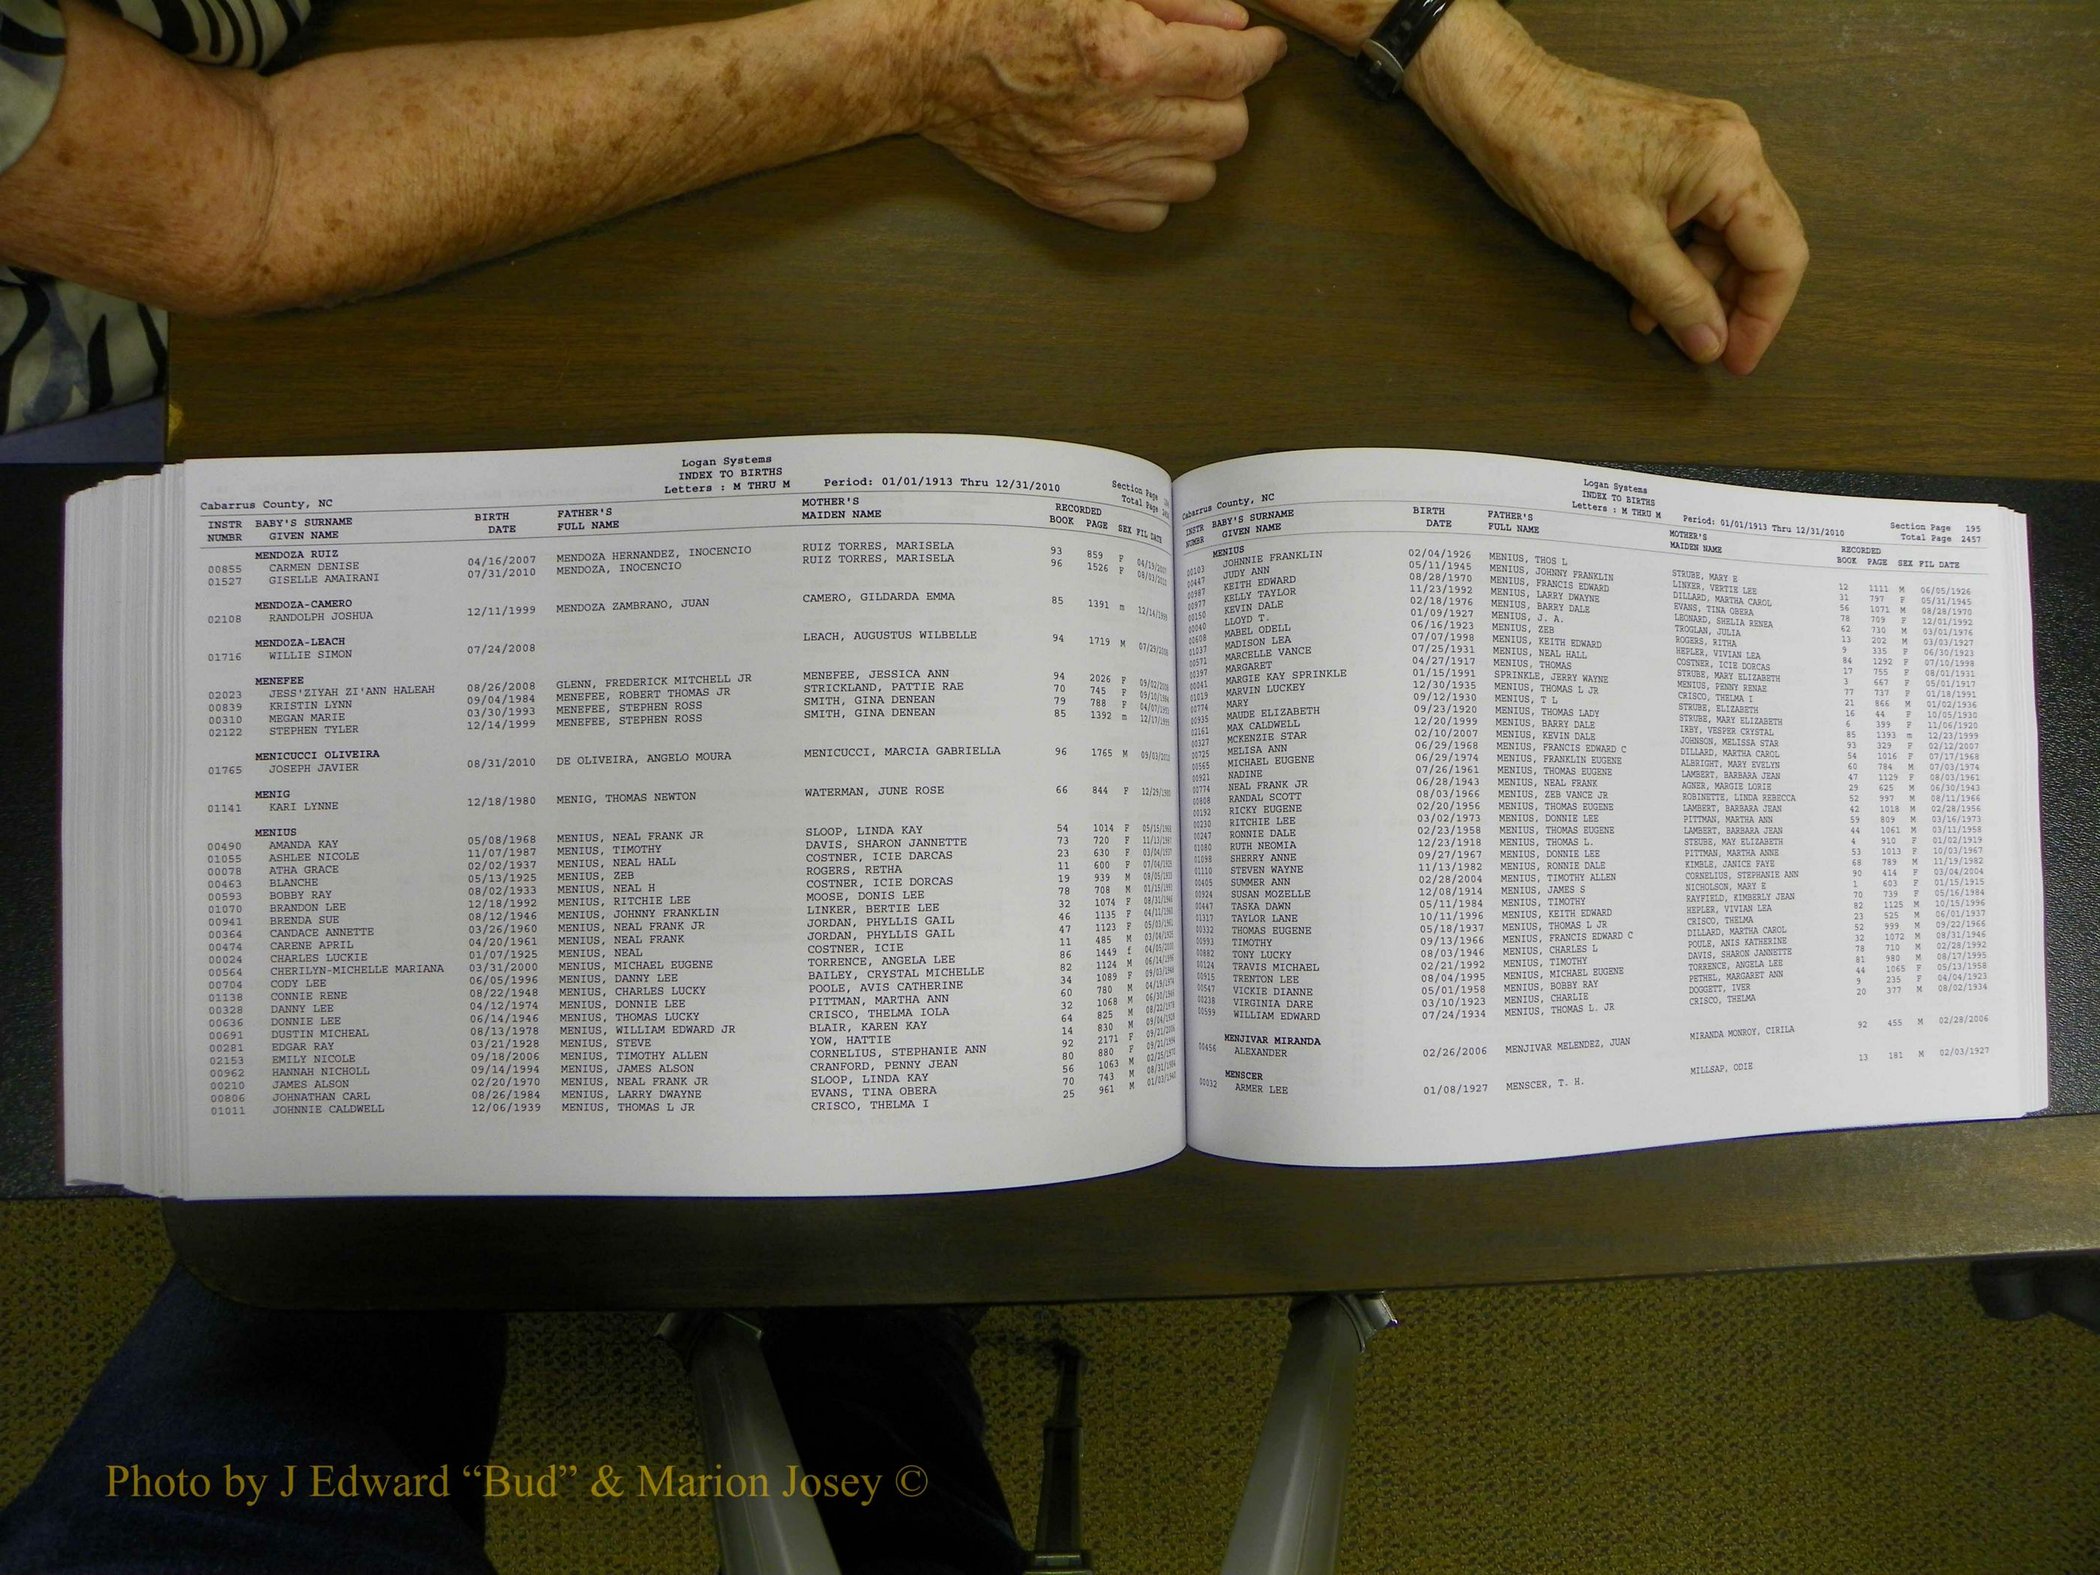 Logan Systems
INDEX TO BIRTHS
Cabarrus County, NC Letters : M THRU M Period: 01/01/1913 Thru 12/31/2010 Section Page
Total Page
INSTR BABY'S SURNAME BIRTH FATHER'S MOTHER'S RECORDED
NUMBR GIVEN NAME DATE FULL NAME MAIDEN NAME BOOK PAGE SEX FIL DATE
MENDOZA RUIZ
00855 CARMEN DENISE 04/16/2007 MENDOZA HERNANDEZ, INOCENCIO RUIZ TORRES, MARISELA 93 859 F 04/19/2007
01527 GISELLE AMAIRANI 07/31/2010 MENDOZA, INOCENCIO RUIZ TORRES, MARISELA 96 1526 F 08/03/2010
MENDOZA-CAMERO
02108 RANDOLPH JOSHUA 12/11/1999 MENDOZA ZAMBRANO, JUAN CAMERO, GILDARDA EMMA 85 1391 m 12/14/1999
MENDOZA-LEACH
01716 WILLIE SIMON 07/24/2008 LEACH, AUGUSTUS WILBELLE 94 1719 M 07/29/2008
MENEFEE
02023 JESS'ZIYAH ZI'ANN HALEAH 08/26/2008 GLENN, FREDERICK MITCHELL JR MENEFEE, JESSICA ANN 94 2026 F 09/02/2008
00839 KRISTIN LYNN 09/04/1984 MENEFEE, ROBERT THOMAS JR STRICKLAND, PATTIE RAE 70 745 F 09/10/1984
00310 MEGAN MARIE 03/30/1993 MENEFEE, STEPHEN ROSS SMITH, GINA DENEAN 79 788 F 04/07/1993
02122 STEPHEN TYLER 12/14/1999 MENEFEE, STEPHEN ROSS SMITH, GINA DENEAN 85 1392 m 12/17/1999
MENICUCCI OLIVEIRA
01765 JOSEPH JAVIER 08/31/2010 DE OLIVEIRA, ANGELO MOURA MENICUCCI, MARCIA GABRIELLA 96 1765 M 09/03/2010
MENIG
01141 KARI LYNNE 12/18/1980 MENIG, THOMAS NEWTON WATERMAN, JUNE ROSE 66 844 F 12/29/1980
MENIUS
00490 AMANDA KAY 05/08/1968 MENIUS, NEAL FRANK JR SLOOP, LINDA KAY 54 1014 F 05/15/1968
01055 ASHLEE NICOLE 11/07/1987 MENIUS, TIMOTHY DAVIS, SHARON JANNETTE 73 720 F 11/13/1987
00078 ATHA GRACE 02/02/1937 MENIUS, NEAL HALL COSTNER, ICIE DARCAS 23 630 F 03/04/1937
00463 BLANCHE 05/13/1925 MENIUS, ZEB ROGERS, RETHA 11 600 F 07/04/1925
00593 BOBBY RAY 08/02/1933 MENIUS, NEAL H COSTNER, ICIE DORCAS 19 939 M 08/05/1933
01070 BRANDON LEE 12/18/1992 MENIUS, RITCHIE LEE MOOSE, DONIS LEE 78 708 M 01/15/1993
00941 BRENDA SUE 08/12/1946 MENIUS, JOHNNY FRANKLIN LINKER, BERTIE LEE 32 1074 F 08/31/1946
00364 CANDACE ANNETTE 03/26/1960 MENIUS, NEAL FRANK JR JORDAN, PHYLLIS GAIL 46 1135 F 04/11/1960
00474 CARENE APRIL 04/20/1961 MENIUS, NEAL FRANK JORDAN, PHYLLIS GAIL 47 1123 F 05/03/1961
00024 CHARLES LUCKIE 01/07/1925 MENIUS, NEAL COSTNER, ICIE 11 485 M 03/04/1925
00564 CHERILYN-MICHELLE MARIANA 03/31/2000 MENIUS, MICHAEL EUGENE TORRENCE, ANGELA LEE 86 1449 f 04/05/2000
00704 CODY LEE 06/05/1996 MENIUS, DANNY LEE BAILEY, CRYSTAL MICHELLE 82 1124 M 06/14/1996
01138 CONNIE RENE 08/22/1948 MENIUS, CHARLES LUCKY POOLE, AVIS CATHERINE 34 1089 F 09/03/1948
00328 DANNY LEE 04/12/1974 MENIUS, DONNIE LEE PITTMAN, MARTHA ANN 60 780 M 04/19/1974
00636 DONNIE LEE 06/14/1946 MENIUS, THOMAS LUCKY CRISCO, THELMA IOLA 32 1068 M 06/30/1946
00691 DUSTIN MICHEAL 08/13/1978 MENIUS, WILLIAM EDWARD JR BLAIR, KAREN KAY 64 825 M 08/22/1978
00281 EDGAR RAY 03/21/1928 MENIUS, STEVE YOW, HATTIE 14 830 M 09/04/1928
02153 EMILY NICOLE 09/18/2006 MENIUS, TIMOTHY ALLEN CORNELIUS, STEPHANIE ANN 92 2171 F 09/21/2006
00962 HANNAH NICHOLL 09/14/1994 MENIUS, JAMES ALSON CRANFORD, PENNY JEAN 80 880 F 09/21/1994
00210 JAMES ALSON 02/20/1970 MENIUS, NEAL FRANK JR SLOOP, LINDA KAY 56 1063 M 02/25/1970
00806 JOHNATHAN CARL 08/26/1984 MENIUS, LARRY DWAYNE EVANS, TINA OBERA 70 743 M 08/31/1984
01011 JOHNNIE CALDWELL 12/06/1939 MENIUS, THOMAS L JR CRISCO, THELMA I 25 961 M 01/03/1940
Logan Systems
INDEX TO BIRTHS
Cabarrus County, NC Letters : M THRU M Period: 01/01/1913 Thru 12/31/2010 Section Page 195
Total Page 2457
INSTR BABY'S SURNAME BIRTH FATHER'S MOTHER'S RECORDED
NUMBR GIVEN NAME DATE FULL NAME MAIDEN NAME BOOK PAGE SEX FIL DATE
MENIUS
00103 JOHNNIE FRANKLIN 02/04/1926 MENIUS, THOS L STRUBE, MARY E 12 1111 M 06/05/1926
00447 JUDY ANN 05/11/1945 MENIUS, JOHNNY FRANKLIN LINKER, VERTIE LEE 31 797 F 05/31/1945
00987 KEITH EDWARD 08/28/1970 MENIUS, FRANCIS EDWARD DILLARD, MARTHA CAROL 56 1071 M 08/28/1970
00977 KELLY TAYLOR 11/23/1992 MENIUS, LARRY DWAYNE EVANS, TINA OBERA 78 709 F 12/01/1992
00150 KEVIN DALE 02/18/1976 MENIUS, BARRY DALE LEONARD, SHELIA RENEA 62 730 M 03/01/1976
00040 LLOYD T. 01/09/1927 MENIUS, J. A. TROGLAN, JULIA 13 202 M 03/03/1927
00608 MABEL ODELL 06/16/1923 MENIUS, ZEB ROGERS, RITHA 9 335 F 06/30/1923
01037 MADISON LEA 07/07/1998 MENIUS, KEITH EDWARD HEPLER, VIVIAN LEA 84 1292 F 07/10/1998
00571 MARCELLE VANCE 07/25/1931 MENIUS, NEAL HALL COSTNER, ICIE DORCAS 17 755 F 08/01/1931
00397 MARGARET 04/27/1917 MENIUS, THOMAS STRUBE, MARY ELIZABETH 3 667 F 05/01/1917
00041 MARGIE KAY SPRINKLE 01/15/1991 SPRINKLE, JERRY WAYNE MENIUS, PENNY RENAE 77 737 F 01/18/1991
01019 MARVIN LUCKEY 12/30/1935 MENIUS, THOMAS L JR CRISCO, THELMA I 21 866 M 01/02/1936
00774 MARY 09/12/1930 MENIUS, T L STRUBE, ELIZABETH 16 44 F 10/05/1930
00935 MAUDE ELIZABETH 09/23/1920 MENIUS, THOMAS LADY STRUBE, MARY ELIZABETH 6 399 F 11/06/1920
02161 MAX CALDWELL 12/20/1999 MENIUS, BARRY DALE IRBY, VESPER CRYSTAL 85 1393 m 12/23/1999
00327 MCKENZIE STAR 02/10/2007 MENIUS, KEVIN DALE JOHNSON, MELISSA STAR 93 329 F 02/12/2007
00725 MELISA ANN 06/29/1968 MENIUS, FRANCIS EDWARD C DILLARD, MARTHA CAROL 54 1016 F 07/17/1968
00565 MICHAEL EUGENE 06/29/1974 MENIUS, FRANKLIN EUGENE ALBRIGHT, MARY EVELYN 60 784 M 07/03/1974
00921 NADINE 07/26/1961 MENIUS, THOMAS EUGENE LAMBERT, BARBARA JEAN 47 1129 F 08/03/1961
00774 NEAL FRANK JR 06/28/1943 MENIUS, NEAL FRANK AGNER, MARGIE LORIE 29 625 M 06/30/1943
00808 RANDAL SCOTT 08/03/1966 MENIUS, ZEB VANCE JR ROBINETTE, LINDA REBECCA 52 997 M 08/11/1966
00192 RICKY EUGENE 02/20/1956 MENIUS, THOMAS EUGENE LAMBERT, BARBARA JEAN 42 1018 M 02/28/1956
00230 RITCHIE LEE 03/02/1973 MENIUS, DONNIE LEE PITTMAN, MARTHA ANN 59 809 M 03/16/1973
00247 RONNIE DALE 02/23/1958 MENIUS, THOMAS EUGENE LAMBERT, BARBARA JEAN 44 1061 M 03/11/1958
01080 RUTH NEOMIA 12/23/1918 MENIUS, THOMAS L. STEUBE, MAY ELIZABETH 4 910 F 01/02/1919
01098 SHERRY ANNE 09/27/1967 MENIUS, DONNIE LEE PITTMAN, MARTHA ANNE 53 1013 F 10/03/1967
01110 STEVEN WAYNE 11/13/1982 MENIUS, RONNIE DALE KIMBLE, JANICE FAYE 68 789 M 11/19/1982
00405 SUMMER ANN 02/28/2004 MENIUS, TIMOTHY ALLEN CORNELIUS, STEPHANIE ANN 90 414 F 03/04/2004
00924 SUSAN MOZELLE 12/08/1914 MENIUS, JAMES S NICHOLSON, MARY E 1 603 F 01/15/1915
00447 TASKA DAWN 05/11/1984 MENIUS, TIMOTHY RAYFIELD, KIMBERLY JEAN 70 739 F 05/16/1984
01317 TAYLOR LANE 10/11/1996 MENIUS, KEITH EDWARD HEPLER, VIVIAN LEA 82 1125 M 10/15/1996
00332 THOMAS EUGENE 05/18/1937 MENIUS, THOMAS L JR CRISCO, THELMA 23 525 M 06/01/1937
00993 TIMOTHY 09/13/1966 MENIUS, FRANCIS EDWARD C DILLARD, MARTHA CAROL 52 999 M 09/22/1966
00882 TONY LUCKY 08/03/1946 MENIUS, CHARLES L POULE, ANIS KATHERINE 32 1072 M 08/31/1946
00124 TRAVIS MICHAEL 02/21/1992 MENIUS, TIMOTHY DAVIS, SHARON JANNETTE 78 710 M 02/28/1992
00915 TRENTON LEE 08/04/1995 MENIUS, MICHAEL EUGENE TORRENCE, ANGELA LEE 81 980 M 08/17/1995
00547 VICKIE DIANNE 05/01/1958 MENIUS, BOBBY RAY PETHEL, MARGARET ANN 44 1065 F 05/13/1958
00238 VIRGINIA DARE 03/10/1923 MENIUS, CHARLIE DOGGETT, IVER 9 235 F 04/04/1923
00599 WILLIAM EDWARD 07/24/1934 MENIUS, THOMAS L. JR CRISCO, THELMA 20 377 M 08/02/1934
MENJIVAR MIRANDA
00456 ALEXANDER 02/26/2006 MENJIVAR MELENDEZ, JUAN MIRANDA MONROY, CIRILA 92 455 M 02/28/2006
MENSCER
00032 ARMER LEE 01/08/1927 MENSCER, T. H. MILLSAP, ODIE 13 181 M 02/03/1927
Photo by J Edward “Bud” & Marion Josey ©